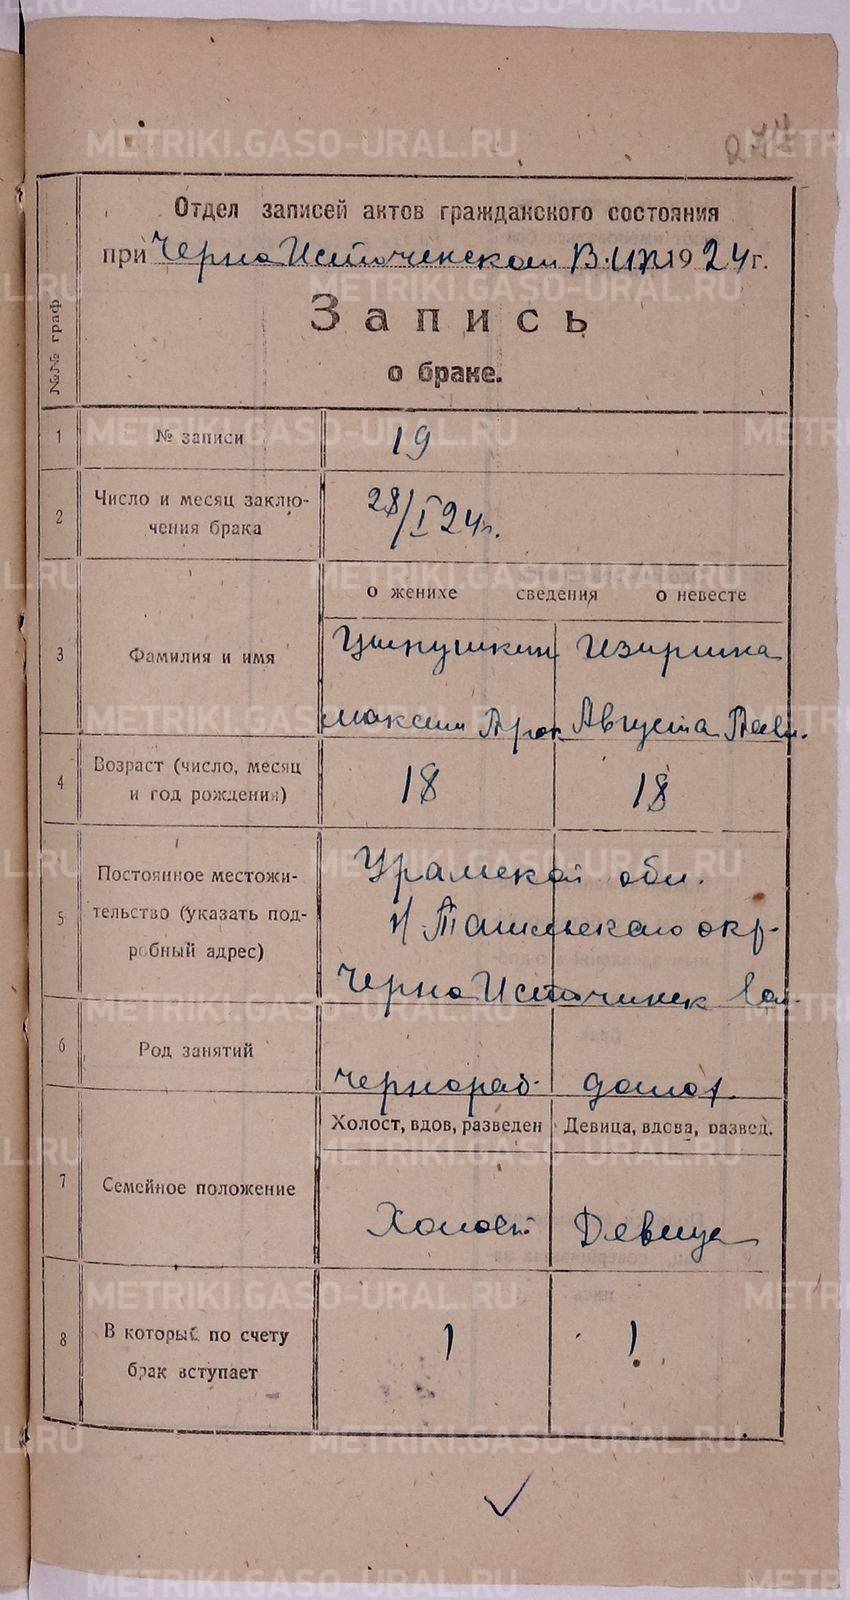 277
Отдел записей актов гражданского состояния
при Черно Источенском В.И.К. 1924 г.
Запись
о браке.
№№ граф
1 № записи 19
2 Число и месяц заключения брака 28/I 24 г.
о женихе сведения о невесте
3 Фамилия и имя
Цыпушкин Изиргина
Максим Прок Августа Павл.
4 Возраст (число, месяц и год рождения) 18 18
5 Постоянное местожительство (указать подробный адрес)
Уралской обл.
Н Тагильскаго окр.
Черно Источинск вол.
6 Род занятий чернораб. домох.
Холост, вдов, разведен Девица, вдова, развед.
7 Семейное положение Холост Девица
8 В который по счету брак вступает 1 1
METRIKI.GASO-URAL.RU